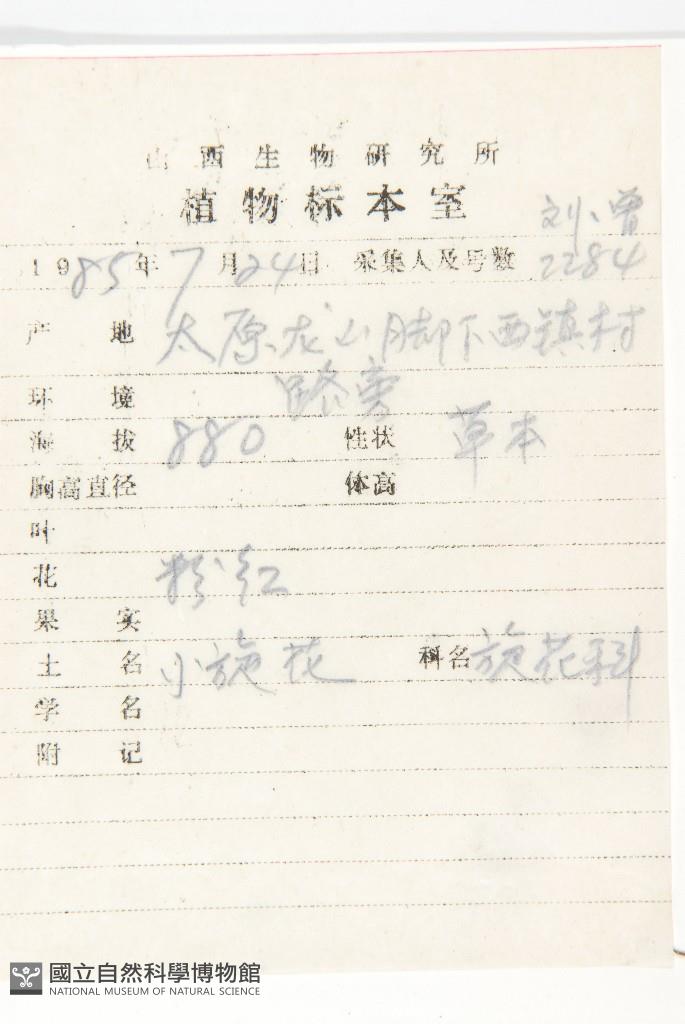 山西生物研究所
植物标本室
刘、曾
1985年7月24日 采集人及号数 2284
产地 太原龙山脚下西镇村
环境 路旁
海拔 880 性状 草本
胸高直径 体高
叶
花 粉红
果实
土名 小旋花 科名 旋花科
学名
附记
國立自然科學博物館
NATIONAL MUSEUM OF NATURAL SCIENCE